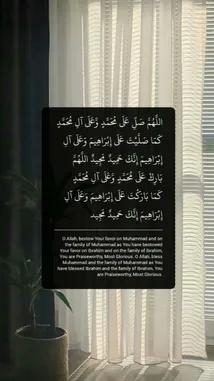 اللَّهُمَّ صَلِّ عَلَى مُحَمَّدٍ وَعَلَى آلِ مُحَمَّدٍ
كَمَا صَلَّيْتَ عَلَى إِبْرَاهِيمَ وَعَلَى آلِ
إِبْرَاهِيمَ إِنَّكَ حَمِيدٌ مَجِيدٌ اللَّهُمَّ
بَارِكْ عَلَى مُحَمَّدٍ وَعَلَى آلِ مُحَمَّدٍ
كَمَا بَارَكْتَ عَلَى إِبْرَاهِيمَ وَعَلَى آلِ
إِبْرَاهِيمَ إِنَّكَ حَمِيدٌ مَجِيد
O Allah, bestow Your favor on Muhammad and on
the family of Muhammad as You have bestowed
Your favor on Ibrahim and on the family of Ibrahim,
You are Praiseworthy, Most Glorious. O Allah, bless
Muhammad and the family of Muhammad as You
have blessed Ibrahim and the family of Ibrahim, You
are Praiseworthy, Most Glorious.